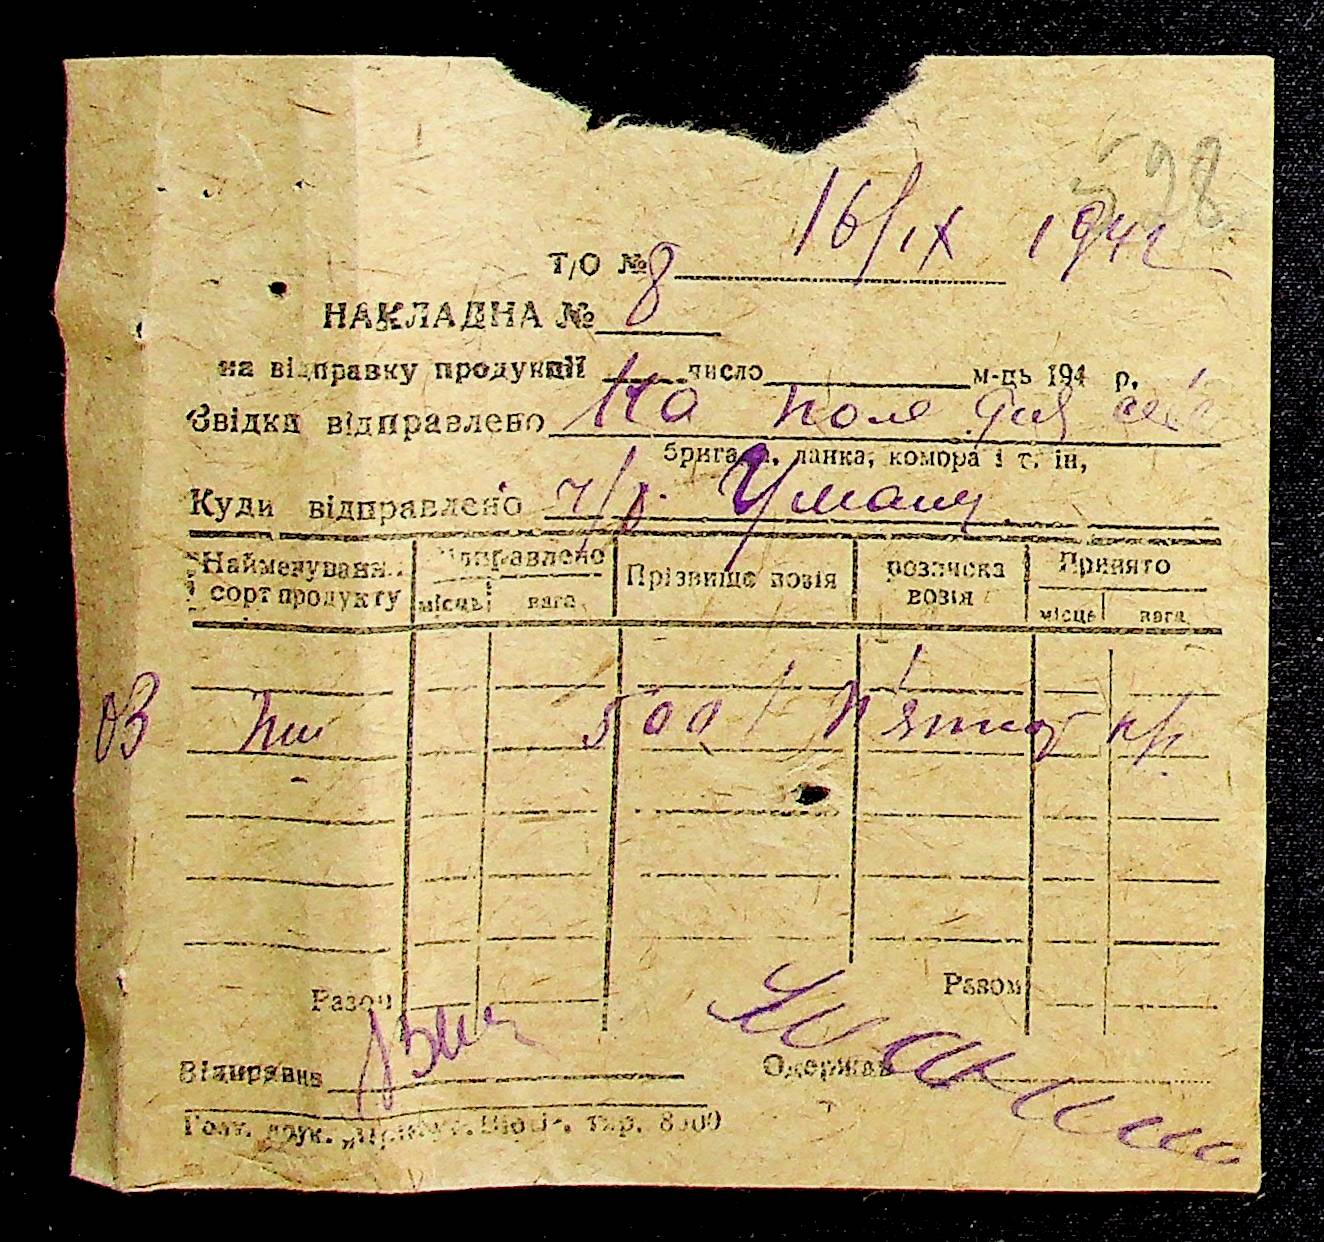 528
16/IX 1942
Т/О № 8
НАКЛАДНА №
на відправку продукції число м-ць 194 р.
Звідки відправлено На поле для
бригада, ланка, комора і т. ін,
Куди відправлено ч/р. Умань
Найменування сорт продукту Відправлено місць вага Прізвище возія розписка возія Принято місць вага
ОЗ пш 500 / п'ятсот кг/
Разом Разом
Відправив Одержав
тир. 8000